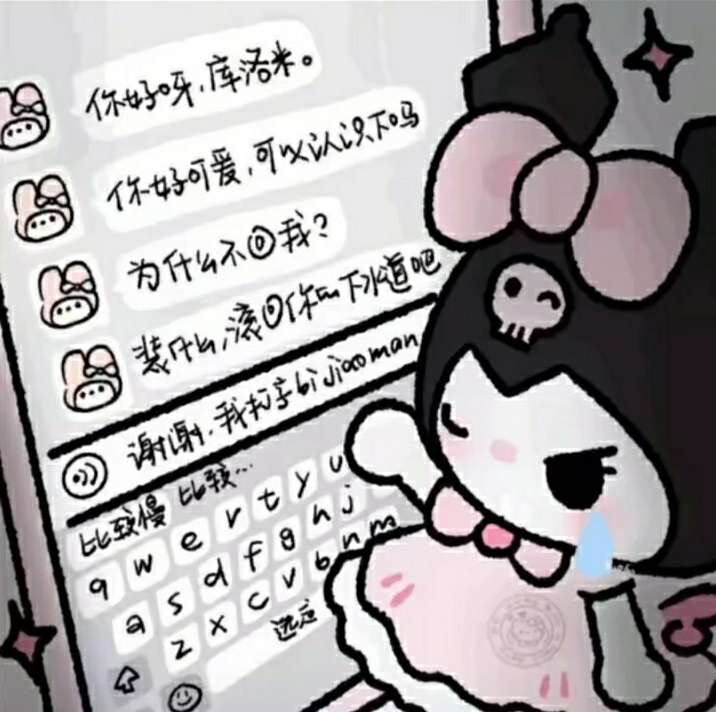 你好呀,库洛米。
你好可爱,可以认识下吗
为什么不回我?
装什么,滚回你的下水道吧
谢谢,我打字bijiaoman
比较慢 比较...
q w e r t y u
a s d f g h j
z x c v b n m
选定